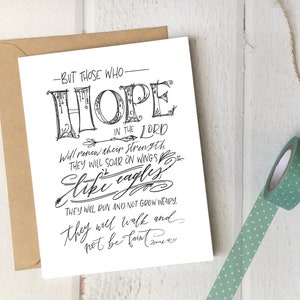 BUT THOSE WHO
HOPE
IN THE LORD
Will renew their strength
THEY WILL SOAR ON WINGS
like eagles
THEY WILL RUN AND NOT GROW WEARY,
they will walk and
not be faint